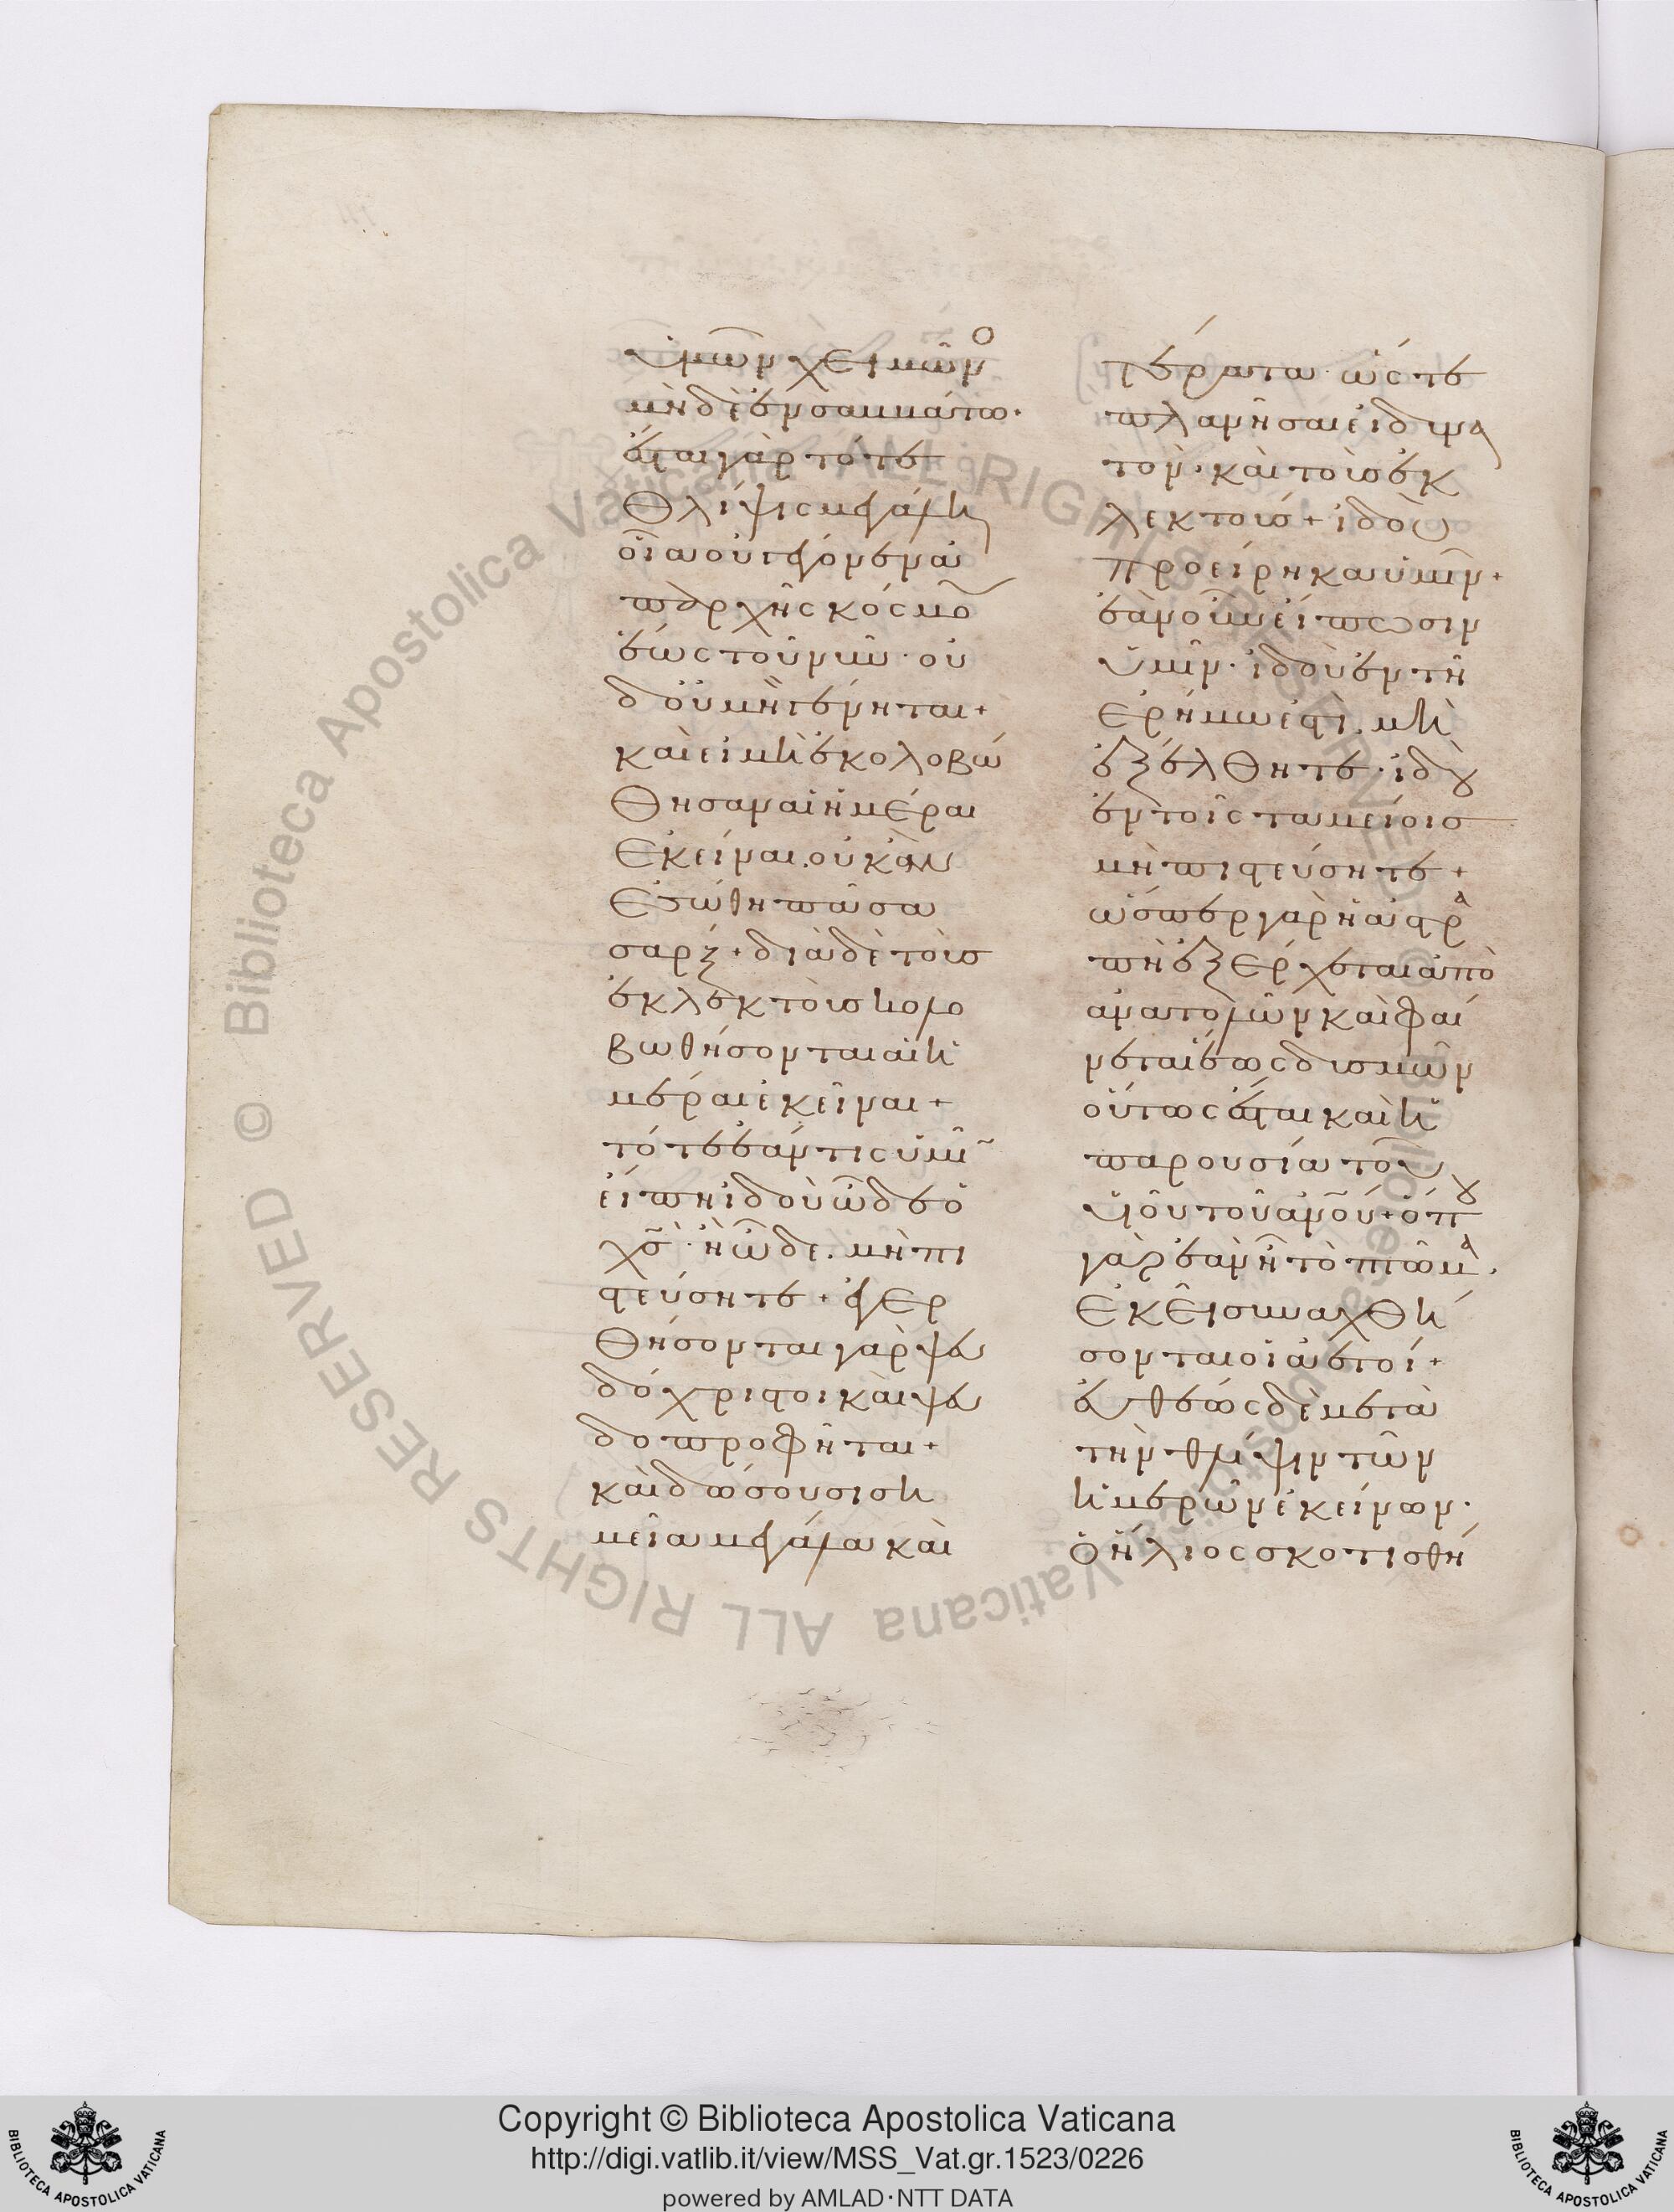 ὑμῶν χειμῶνο
μηδὲ ἐν σαββάτω·
ἔσται γὰρ τότε
θλίψις μεγάλη
οἵα οὐ γέγονεν ἀ
π ἀρχῆς κόσμου
ἕως τοῦ νῦν· οὐ
δ οὐ μὴ γένηται+
καὶ εἰ μὴ ἐκολοβώ
θησαν αἱ ἡμέραι
ἐκεῖναι. οὐκ ἂν
ἐσώθη πᾶσα
σάρξ+ διὰ δὲ τοὺσ
ἐκλεκτοὺσ κολο
βωθήσονται αἱ ἡ
μέραι ἐκεῖναι+
τότε ἐάν τις ὑμῖν
εἴπη ἰδοὺ ὧδε ὁ
χσ̅· ἢ ὧδε. μὴ πι
στεύσητε+ ἐγερ
θήσονται γὰρ ψευ
δόχριστοι καὶ ψευ
δοπροφῆται+
καὶ δώσουσι ση
μεῖα μεγάλα καὶ
τέρατα· ὥστε
πλανῆσαι εἰ δυνα
τόν· καὶ τοὺσ ἐκ
λεκτούσ+ ἰδοὺ
προείρηκα ὑμῖν+
ἐὰν οὖν εἴπωσιν
ὑμῖν· ἰδοὺ ἐν τῆ
ἐρήμω ἐστί. μὴ
ἐξέλθητε· ἰδοὺ
ἐν τοῖς ταμείοισ
μὴ πιστεύσητε+
ὥσπερ γὰρ ἡ ἀστρα
πὴ ἐξέρχεται ἀπὸ
ἀνατολῶν καὶ φαί
νεται ἕως δυσμῶν
οὕτως ἔσται καὶ ἡ
παρουσία τοῦ
υἱοῦ τοῦ ἀνο̅υ̅+ ὅπου
γὰρ ἐὰν ἦ τὸ πτῶμα.
ἐκεῖ συναχθή
σονται οἱ ἀετοί+
εὐθέως δὲ μετὰ
τὴν θλίψιν τῶν
ἡμερῶν ἐκείνων·
ὁ ἥλιος σκοτισθή
Biblioteca Apostolica Vaticana ALL RIGHTS RESERVED ©
Biblioteca Apostolica Vaticana ALL RIGHTS RESERVED ©
Copyright © Biblioteca Apostolica Vaticana
http://digi.vatlib.it/view/MSS_Vat.gr.1523/0226
powered by AMLAD·NTT DATA
BIBLIOTECA APOSTOLICA VATICANA
BIBLIOTECA APOSTOLICA VATICANA